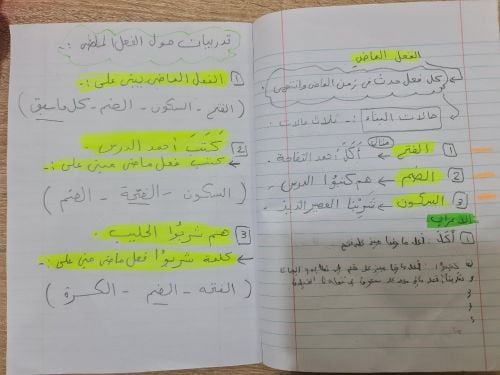 الفعل الماضي
كل فعل حدث في زمن الماضي وانتهى
حالات البناء :- ثلاث حالات:
1 الفتح ← مثال أكلَ أحمد التفاحة.
2 الضم ← هم كتبُوا الدرس.
3 السكون ← شربْنا العصير اللذيذ.
الاعراب
1 أكلَ :
تدريبات حول الفعل الماضي :-
1 الفعل الماضي يبنى على :-
(الفتح - السكون - الضم - كل ما سبق)
2 كَتَبَ أحمد الدرس.
← كتبَ فعل ماضي مبني على :-
(السكون - الفتحة - الضم)
3 هم شربُوا الحليب.
← كلمة شربوا فعل ماضي مبني على :-
(الفقه - الضم - الكسرة)